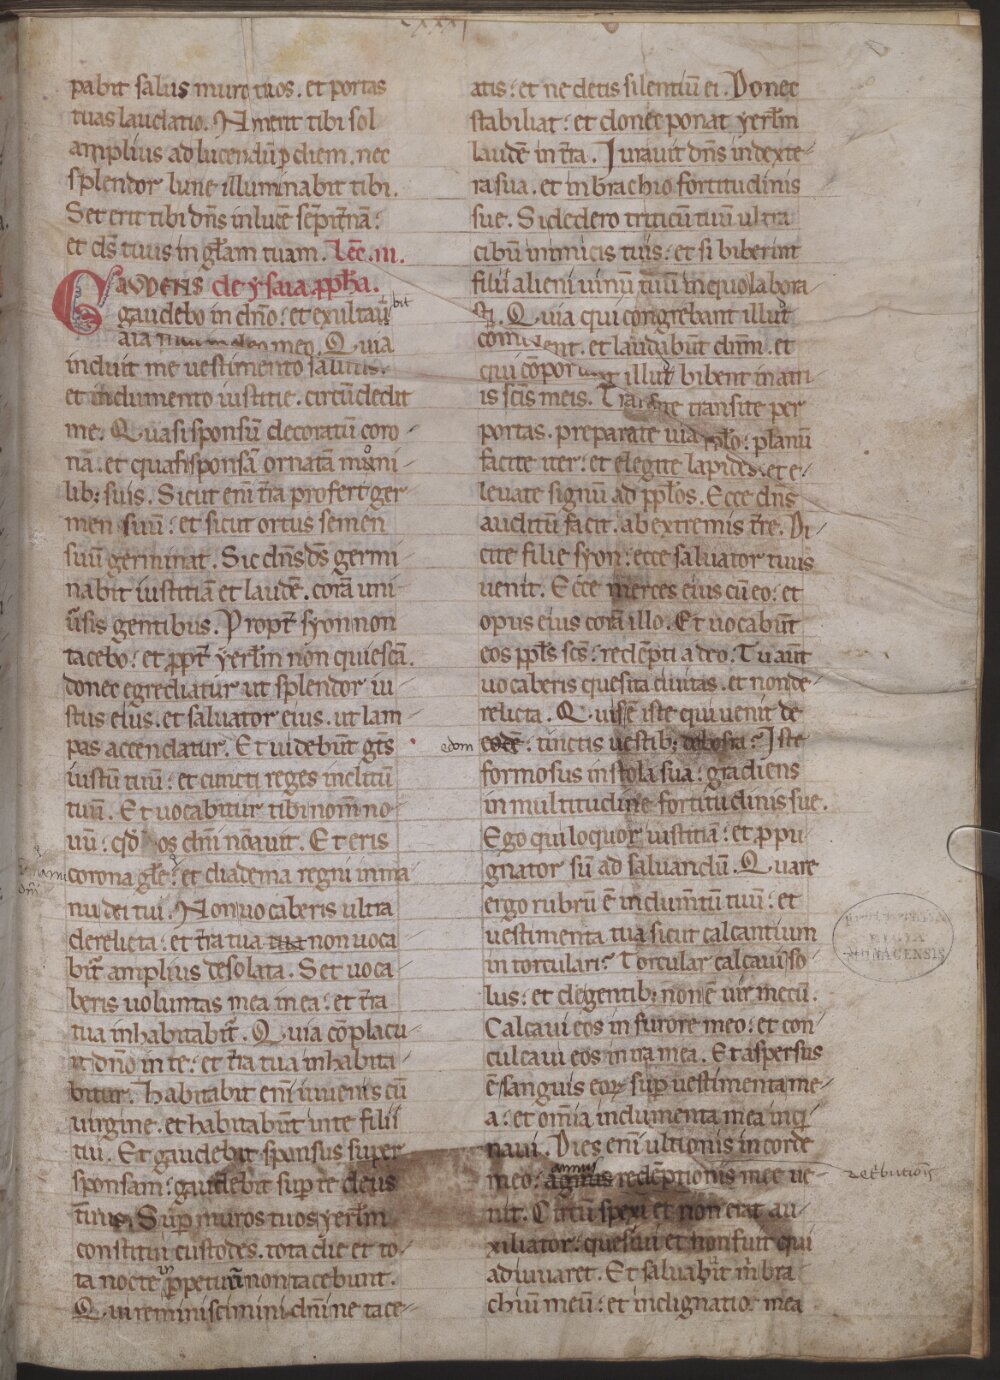 xxxi
pabit salus muro tuos. et portas
tuas laudatio. N merit tibi sol
amplius ad lucendū p diem. nec
splendor lune illuminabit tibi.
Set erit tibi dn̄s in lucē sēpit̄nā:
et dꝰ tuus in gl̄am tuam. Lec̄. iii.
GAUDENS de ysaia ꝓph̄a.
gaudebo in dn̄o: et exultaū bit
aīa meo. Quia
induit me uestimento salutis.
et indumento iustitie. circūdedit
me. Quasi sponsū decoratū coro
nā: et quasi sponsā ornatā moni
lib; suis. Sicut enī t̄ra profert ger
men suū: et sicut ortus semen
suū germinat. Sic dn̄s ds̄ germi
nabit iustitiā et laudē. corā uni
ūsis gentibus. Propt̄ syon non
tacebo: et ꝓpt̄ yerl̄m non quiescā.
donec egrediatur ut splendor iu
stus eius. et saluator eius. ut lam
pas accendatur. Et uidebūt gt̄s
iustū tuū: et cuncti reges inclitū
tuū. Et uocabitur tibi nom̄ no
uū: qd̄ os dn̄i nōauit. Et eris
corona gl̄e: et diadema regni in ma
nu dei tui. Non uocaberis ultra
derelicta: et t̄ra tua tua non uoca
bit̄ amplius desolata. Set uoca
beris uoluntas mea in ea: et t̄ra
tua inhabitabit̄. Quia cōplacu
it dn̄o in te: et t̄ra tua inhabita
bitur. Habitabit enī iuuenis cū
uirgine. et habitabūt in te filii
tui. Et gaudebit sponsus super
sponsam: gaudebit sup te deus
tuus. Sup muros tuos yerl̄m
constitui custodes. tota die et to
ta nocte ꝑpetuū non tacebunt.
Qui reminiscimini dn̄i ne tace
atis: et ne detis silentiū ei. Donec
stabiliat: et donec ponat yerl̄m
laudē in t̄ra. Iurauit dn̄s in dexte
ra sua. et in brachio fortitudinis
sue. Si dedero triticū tuū ultra
cibū inimicis tuis: et si biberint
filii alieni uinū tuū in quo labora
sti. Quia qui congrebant illud
comedent. et laudabūt dnm̄. et
qui cōportant illud bibent in atri
is scīs meis. Transite transite per
portas. preparate uia pplo: planū
facite iter: et elegite lapides. et e
leuate signū ad ppl̄os. Ecce dn̄s
auditū facit. ab extremis t̄re. Di
cite filie syon: ecce saluator tuus
uenit. Ecce merces eius cū eo: et
opus eius corā illo. Et uocabūt
eos ppl̄s scs̄: redēpti a deo. Tu aut̄
uocaberis quesita ciuitas. et non de
relicta. Quis ē iste qui uenit de
edom edē: tinctis uestib; de bosra? Iste
formosus in stola sua: gradiens
in multitudine fortitudinis sue.
Ego qui loquor iustitiā: et ꝓpu
gnator sū ad saluandū. Quare
ergo rubrū ē indumtū tuū: et
uestimenta tua sicut calcantium
in torculari? Torcular calcaui so
lus: et de gentib; non ē uir mecū.
Calcaui eos in furore meo: et con
culcaui eos in ira mea. Et aspersus
ē sanguis eoꝝ sup uestimenta me
a: et om̄ia indumenta mea inqi
naui. Dies enī ultionis in corde
meo: annus agnus redēptionis mee ue retbutiōis
nit. Circū spexi et non erat au
xiliator: quesiui et non fuit qui
adiuuaret. Et saluabit m̄ bra
chiū meū: et indignatio mea
BIBLIOTHECA
REGIA
MONACENSIS